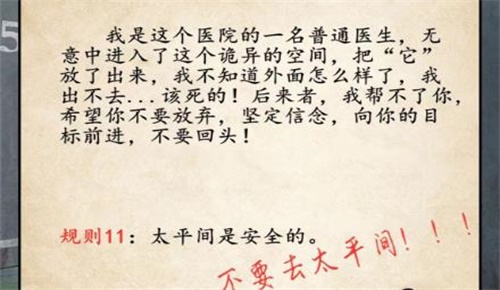 5
我是这个医院的一名普通医生，无
意中进入了这个诡异的空间，把“它”
放了出来，我不知道外面怎么样了，我
出不去...该死的！后来者，我帮不了你，
希望你不要放弃，坚定信念，向你的目
标前进，不要回头！
规则11：太平间是安全的。
不要去太平间！！！